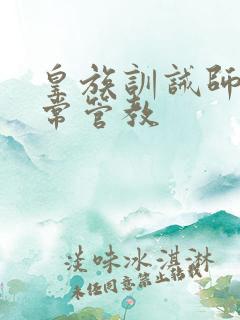 皇族訓誡師
常管教
淡味冰淇淋
未经同意禁止转载